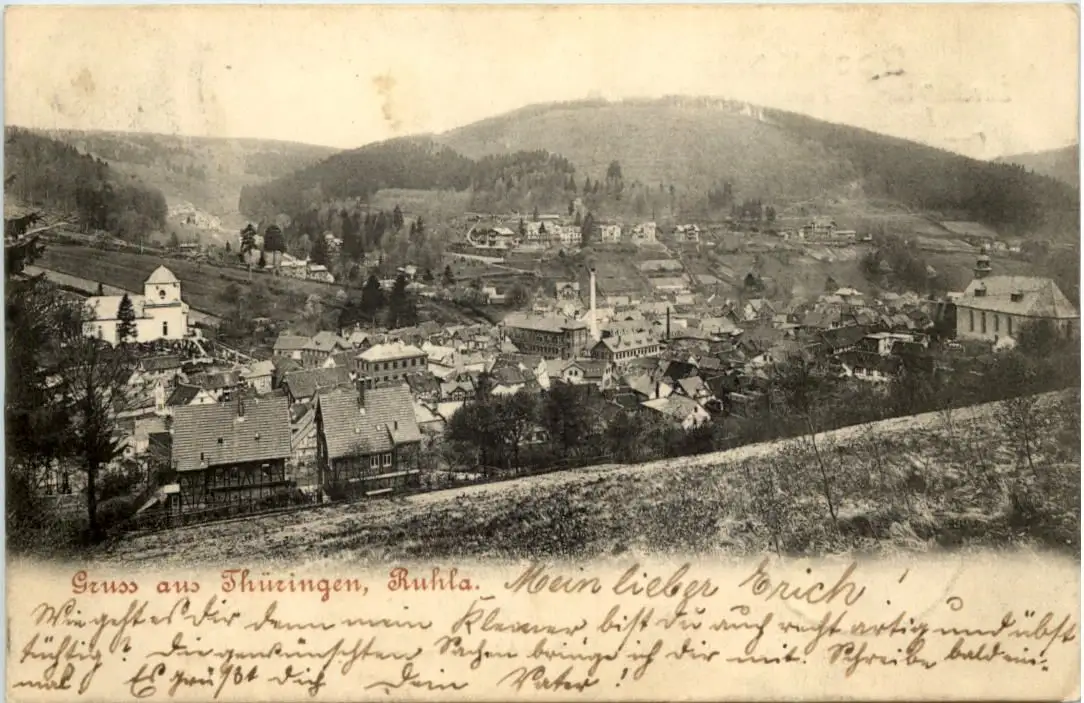 Gruss aus Thüringen, Ruhla. Mein lieber Erich!
Wie geht es Dir denn mein Kleiner bist Du auch recht artig und übst
tüchtig? Die gewünschten Sachen bringe ich Dir mit. Schreibe bald ein-
mal, Es grüßt Dich Dein Vater!